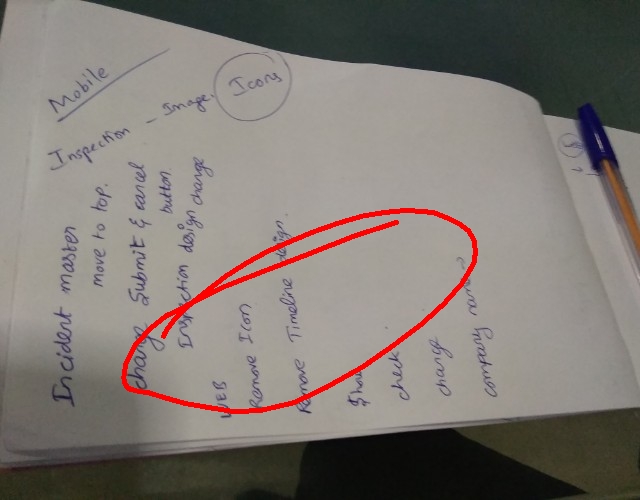 Mobile
Inspection - Image. Icons
Incident master
move to top.
change Submit & cancel
button.
Inspection design change
WEB
Remove Icon
Remove Timeline design.
Show
check
change
company name